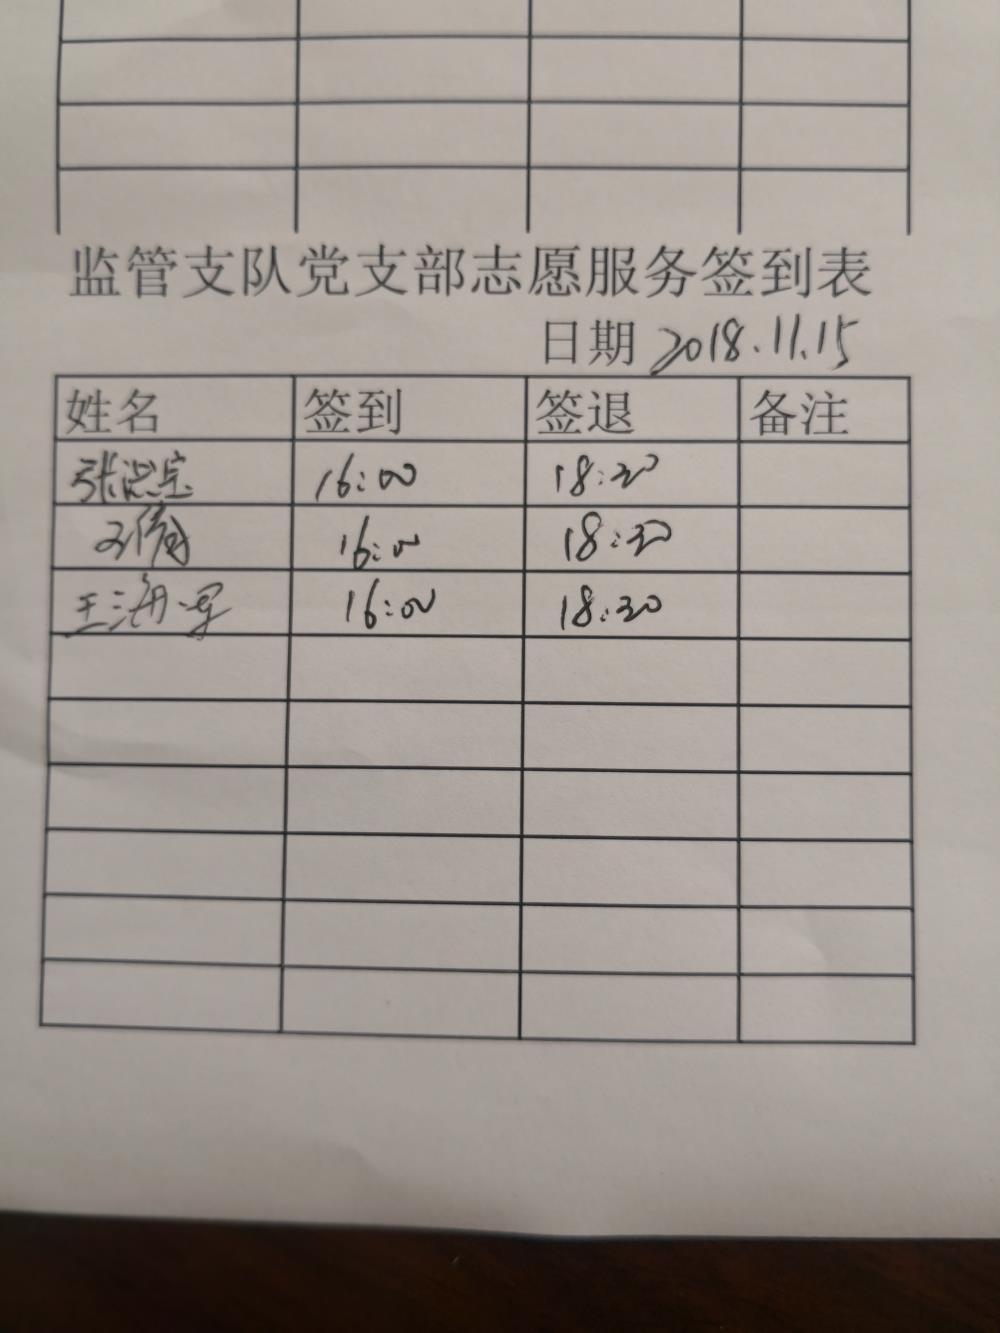 监管支队党支部志愿服务签到表
日期 2018.11.15
姓名 签到 签退 备注
16:00 18:30
16:00 18:30
王海军 16:00 18:30